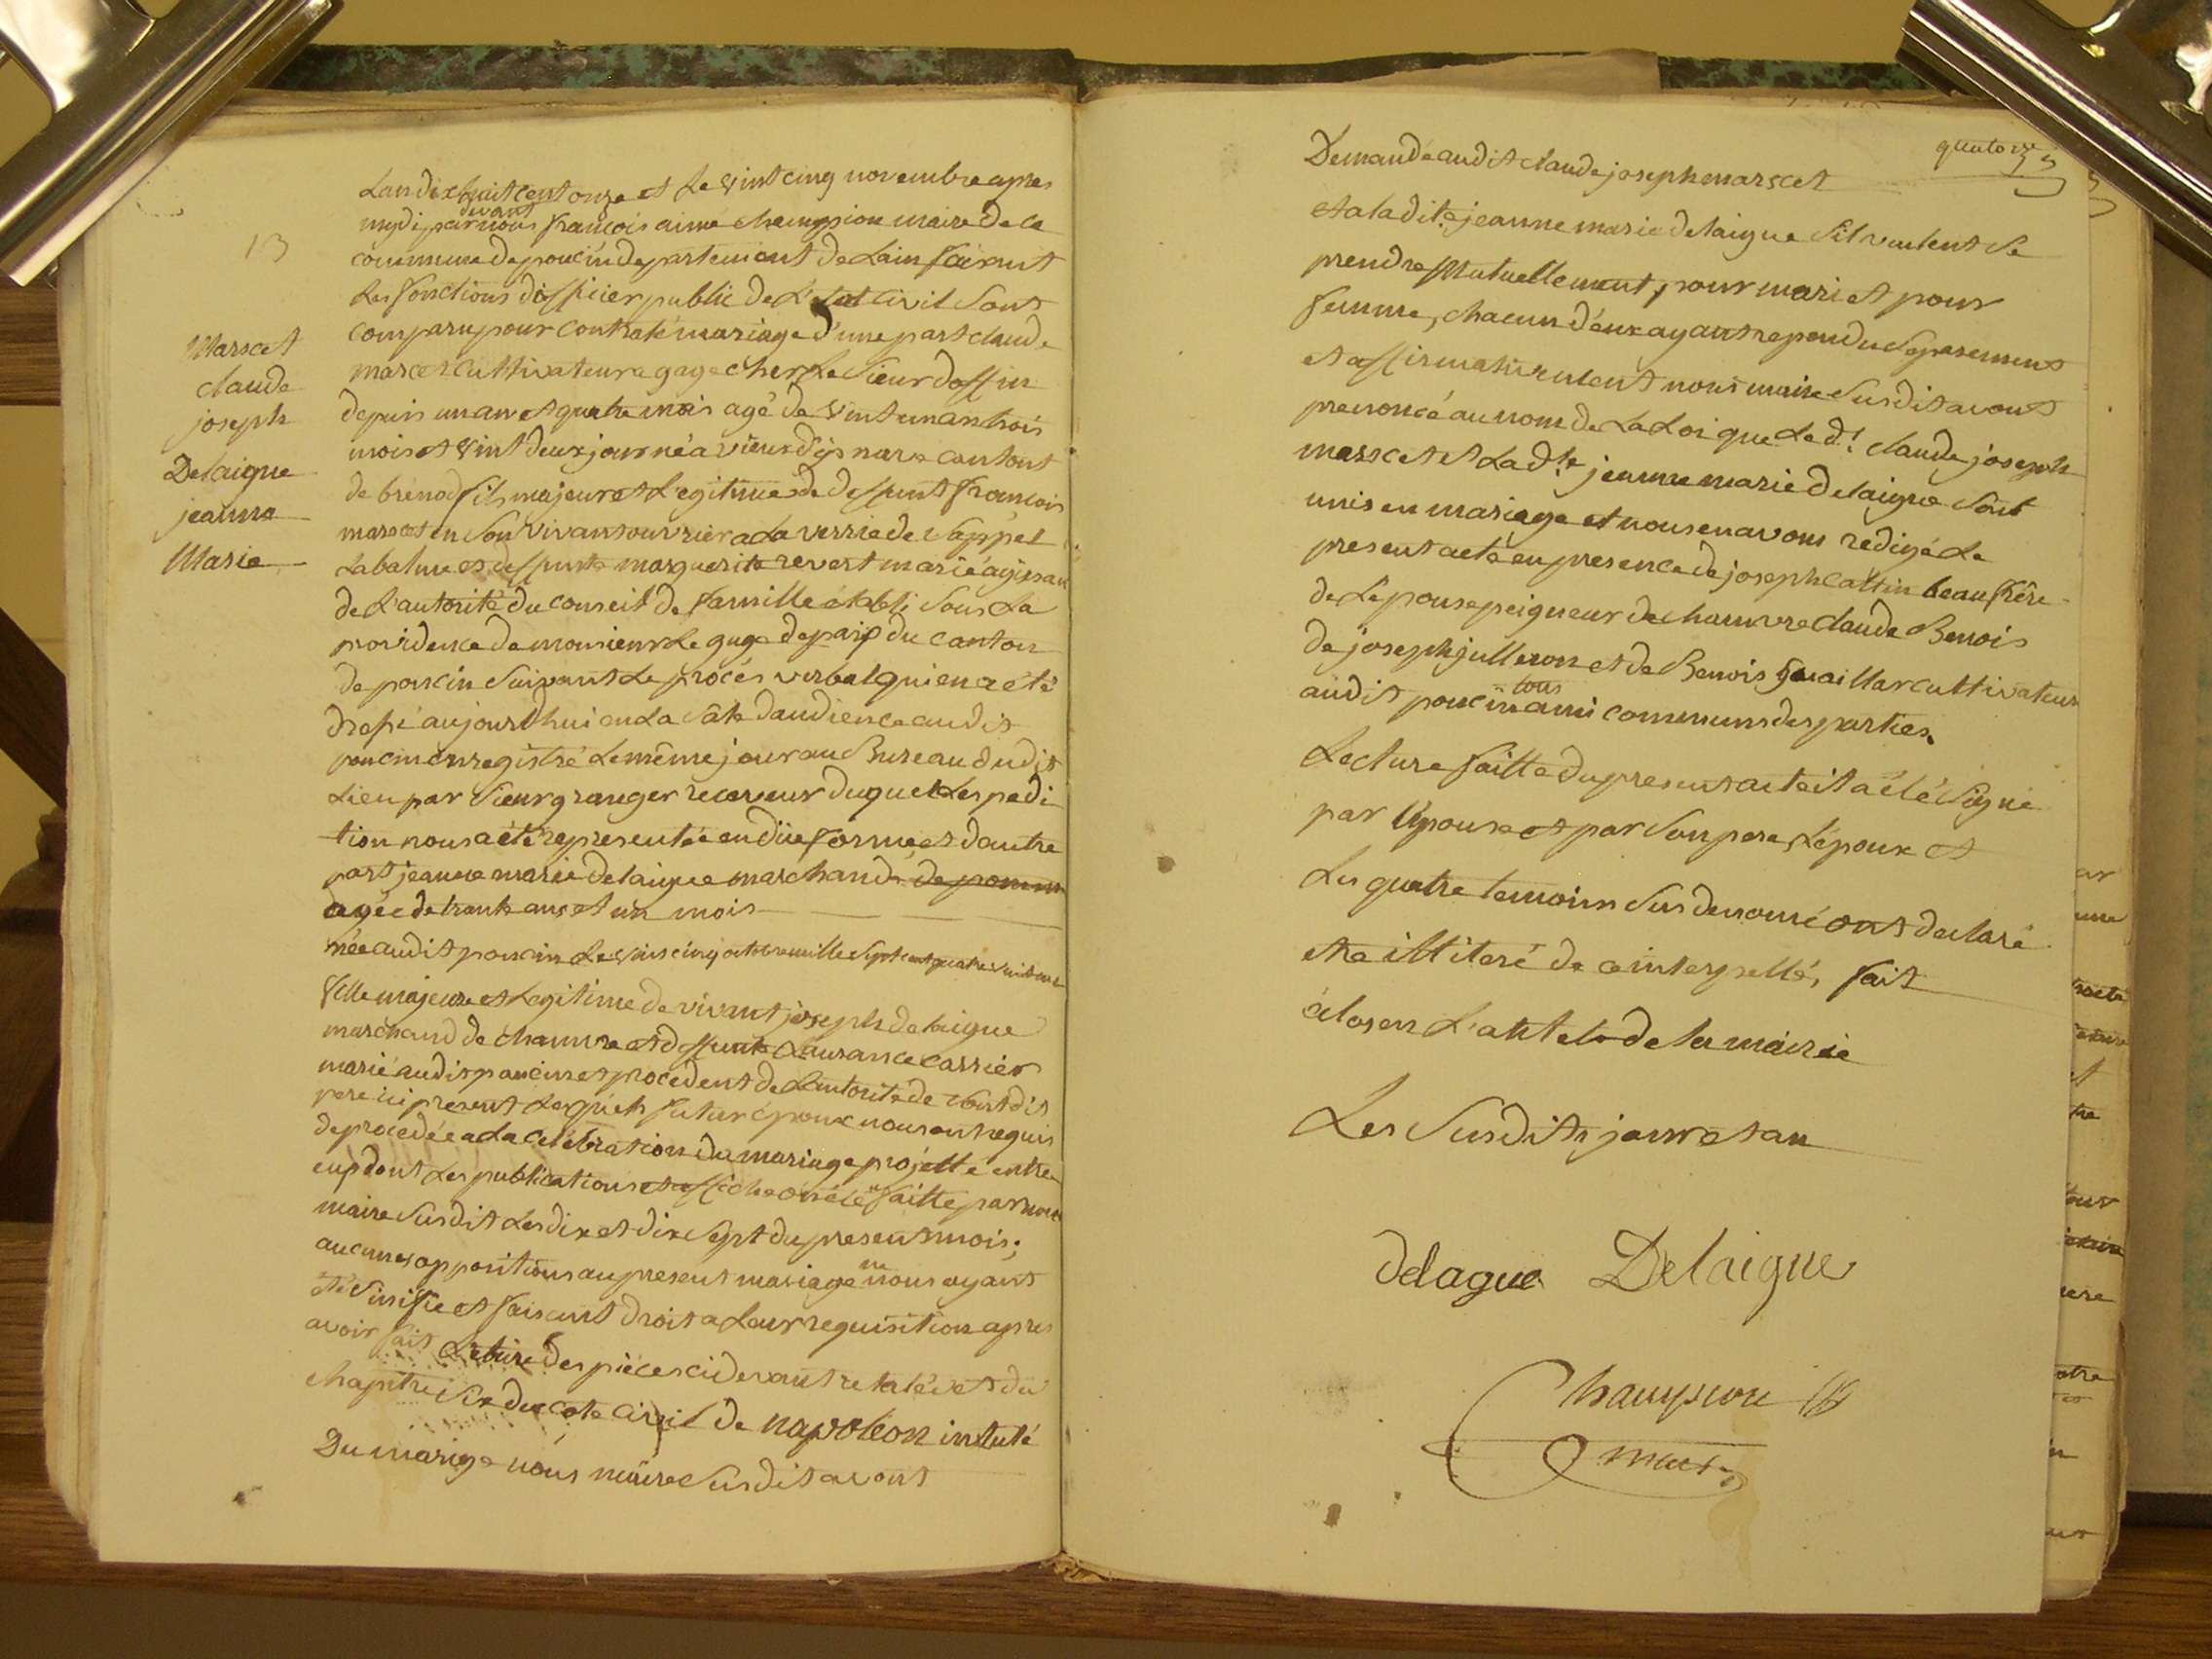 13
Marscet
claude
joseph
Delaigue
jeanne
Marie
Lan dix huit cent onze et Le vint cinq novembre apres
midi par devant nous francois aime champion maire de la
commune de poncin departement de Lain faisant
Les fonctions dofficier public de L'etat civil Sont
comparu pour contraté mariage d'une part claude
marscet cultivateur a gage cher Le Sieur doffin
depuis un an et quatre mois agé de vint un an trois
mois et vint deux jour né a vieux d'isnave cantont
de brénod fils majeur et Legitime de deffunt francois
marscet en Son vivant ouvrier a La verrie de
Labalme et deffunte marguerite revert marié agissan
de L'autorité du conseil de famille établi Sous La
providence de monsieur Le guge de paix du canton
de poncin Suivant Le procés verbal qui en a été
drapé aujourdhui en La Sale daudience audit
poncin enregistré Le même jour au Bureau dudit
Lieu par Sieur granger receveur duquel Lespedi
tion nous a été representée en düe forme et dautre
part jeanne marie delaigue marchande de pomm
agée de trante ans et un mois
née audit poncin Le vint cinq octobre mille Sept cent quatre vint
fille majeure et Legitime de vivant joseph delaigue
marchand de chanvre et deffunte Laurance carrier
marié audit poncin et procedent de Lautorité de Sondit
pere ici present Lesquels futur époux nous ont requis
de procedée a La celebration du mariage projetté entre
eup dont Les publications et affiche on été faitte par nous
maire Susdit Les dix et dix Sept du present mois;
aucunes oppositions au present mariage ne nous ayant
été Sinifie et faisant droit a Leur requisition apres
avoir fait Lecture des pièces cidevant relatés et du
chapitre Six du cote civil de napoléon intulé
Du mariage nous maire Susdit avont
quatorze
Demandé audit claude joseph marscet
et a ladite jeanne marie delaigue Sil veulent Se
prendre Mutuellement, pour mari et pour
femme, chacun d'eux ayant repondu Séparement
et affirmativement nous maire Susdit avont
prenoncé au nom de La Loi que Led.t claude joseph
marscet et Lad.te jeanne marie delaigue Sont
unis en mariage et nous en avons redigé Le
present acte en presence de joseph cattin beau frère
de Lepouse peigneur de chanvre claude Benois
de joseph julleron et de Benois cultivateur
audit poncin tous ami communs des parties.
Lecture faitte du present acte it a été Signé
par Lépouse et par Son pere, Lépoux et
Les quatre temoins Sus denomé ont declaré
etre illiteré de ce interpellés, fait
éclos en L'autel de la mairie
Les Susdits jour et an
delague Delaigue
Champion
maire